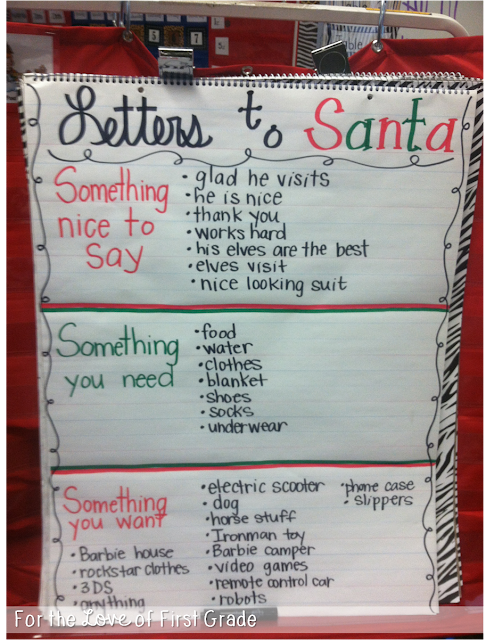 Letters to Santa
Something
nice to
say
• glad he visits
• he is nice
• thank you
• works hard
• his elves are the best
• elves visit
• nice looking suit
Something
you need
• food
• water
• clothes
• blanket
• shoes
• socks
• underwear
Something
you want
• Barbie house
• rockstar clothes
• 3DS
• anything
• electric scooter
• dog
• horse stuff
• Ironman toy
• Barbie camper
• video games
• remote control car
• robots
• phone case
• slippers
For the Love of First Grade